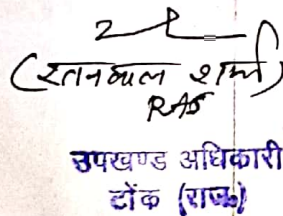 (रतनलाल शर्मा)
RAS
उपखण्ड अधिकारी
टोंक (राज॰)